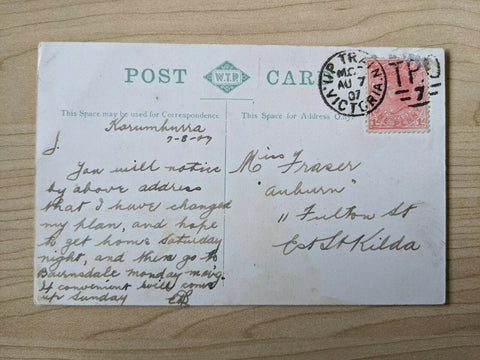 POST W.T.P. CARD
UP TRA
M.C.
AU 7
07
VICTORIA
T.P.O
7
This Space may be used for Correspondence
This Space for Address Only
Korumburra
7-8-07
J.
You will notice
by above address
that I have changed
my plan, and hope
to get home Saturday
night, and then go to
Bairnsdale Monday morg.
If convenient will come
up Sunday
Miss Fraser
"Auburn"
11 Fulton St
Est St Kilda